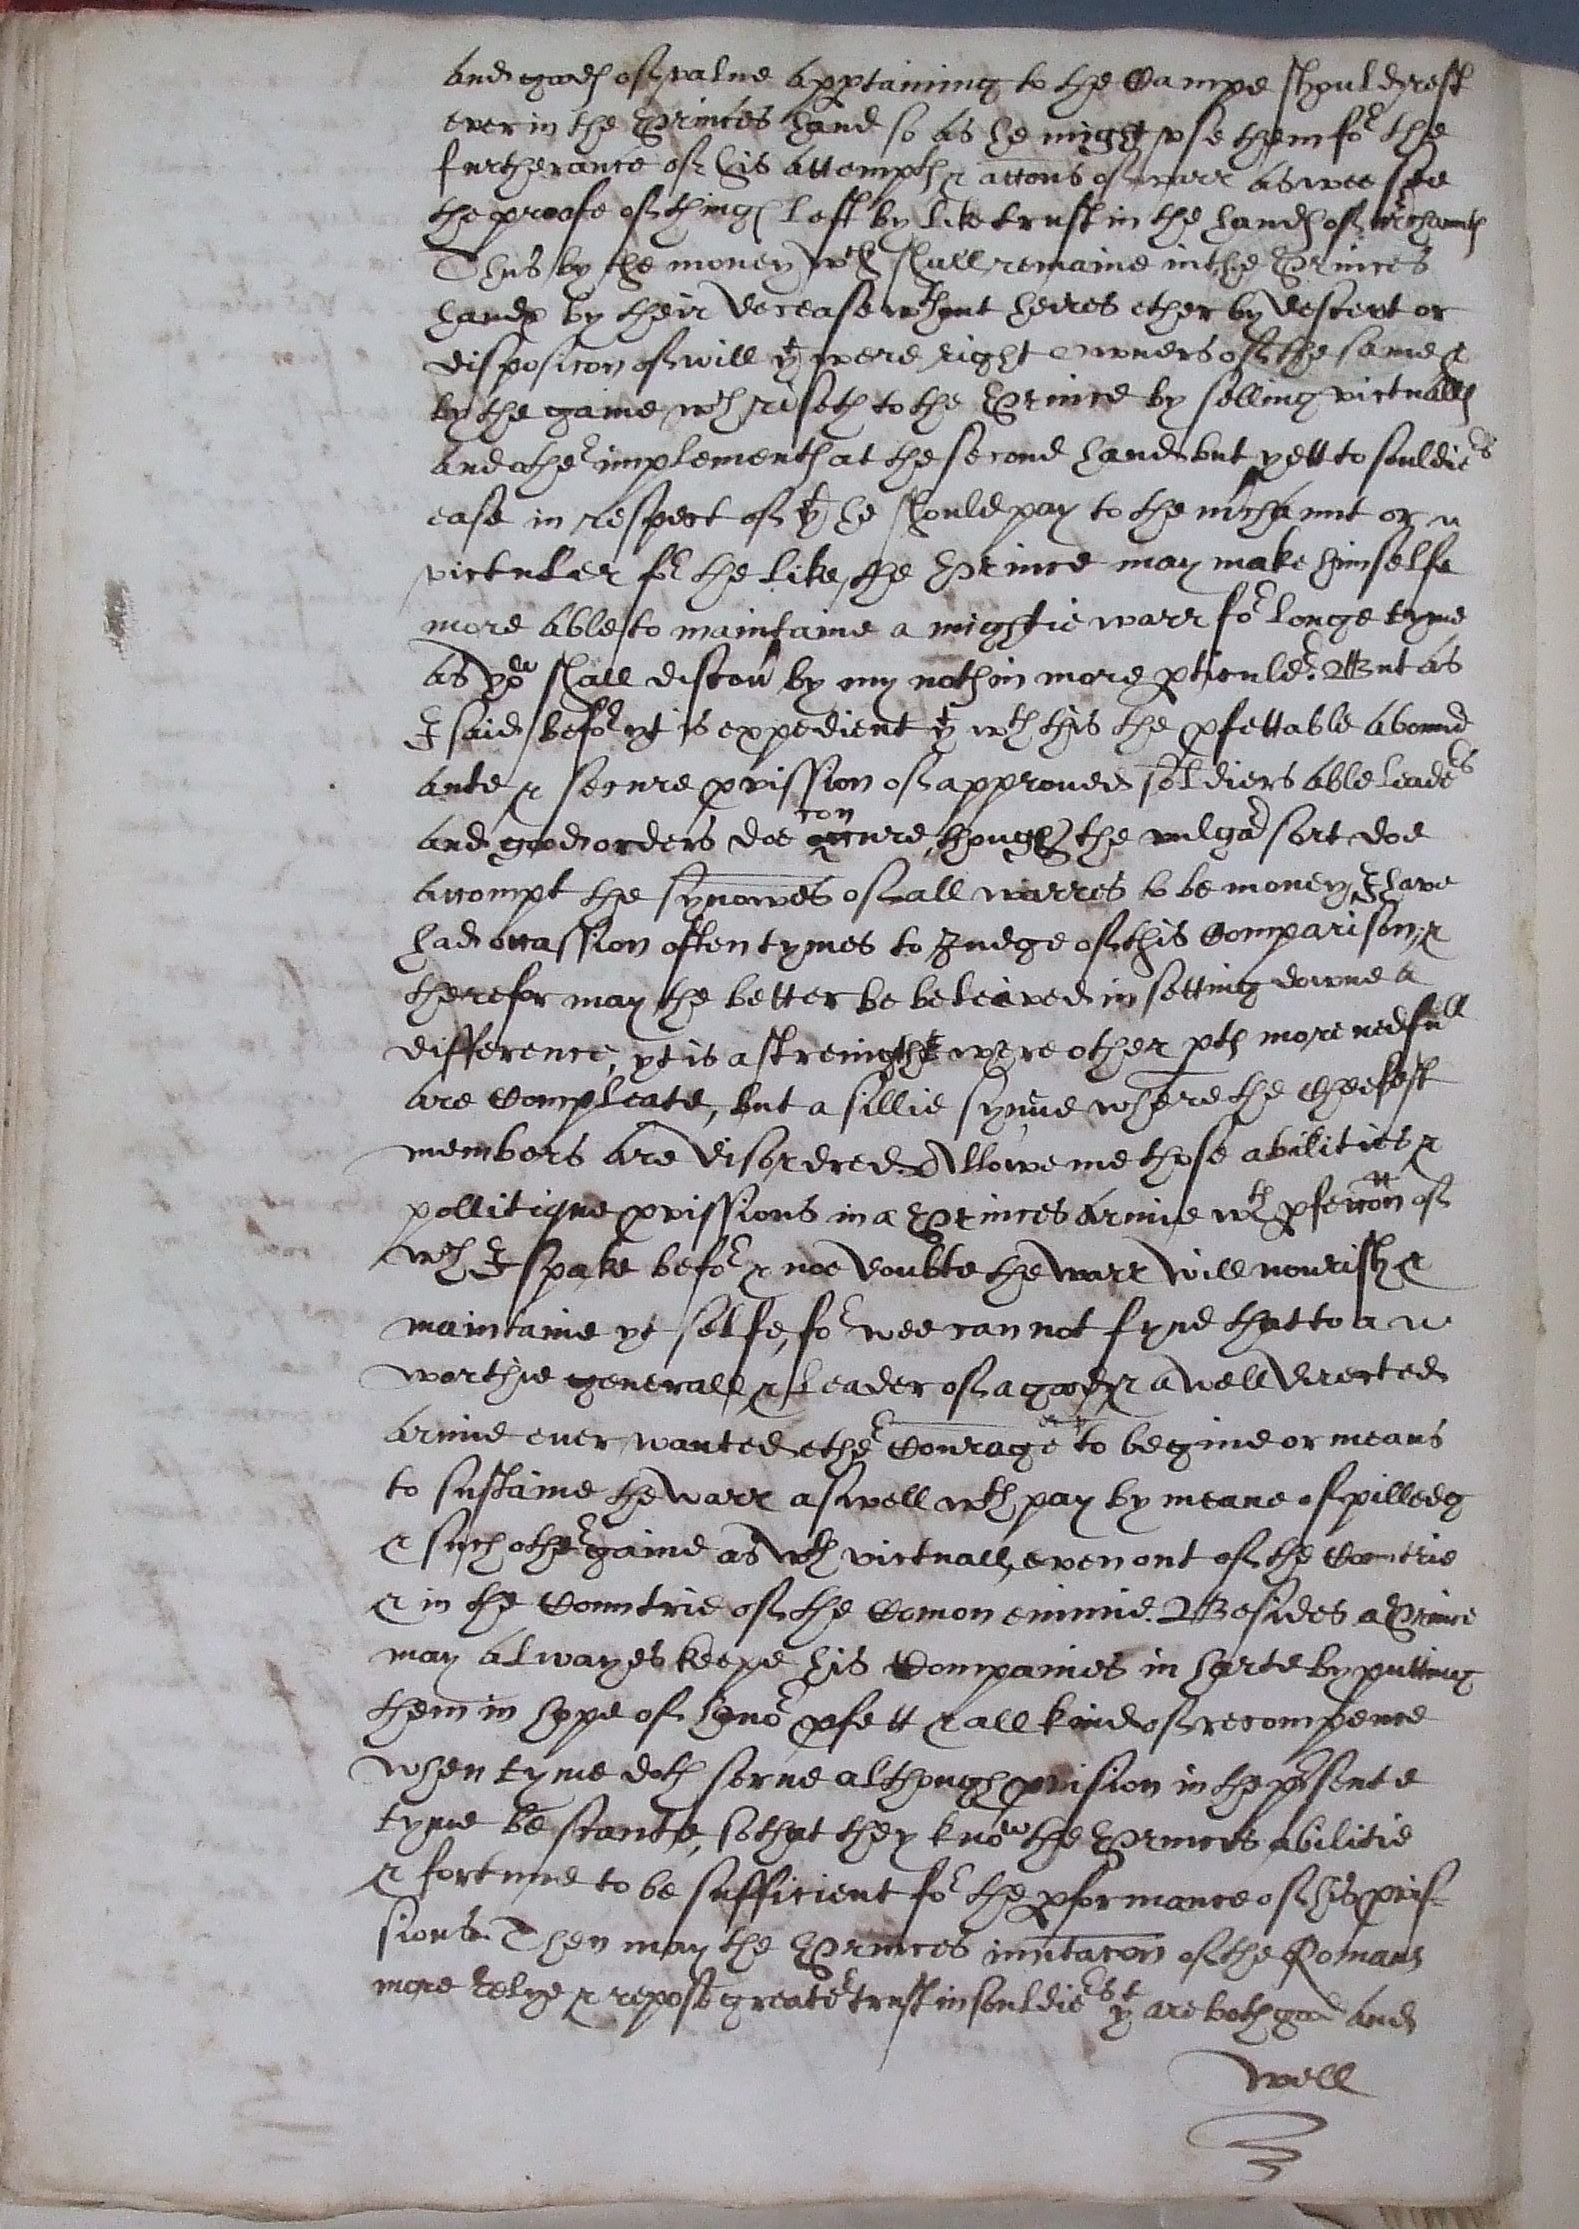 and goods of value apptaining to the Campe should rest
ever in the Princes hand so as he might use them for the
furtherance of his attempts & actions of warr as wee see
the proofe of things lost by like trust in the hands of mrchaunts
Thus by the money wch shall remaine in the Princes
hands by their decease wthout heires ether by descent or
disposicon of will yt were right owners of the same &
by the gaine wch riseth to the Prince by selling victualls
and other implements at the second hand but yett to souldiers
ease in respect of yt he should pay to the mrchaunt or
victuler for the like, the Prince may make himselfe
more able to maintaine a mightie warr for longe tyme
as you shall discour by my nothin more pticuler. But as
I said before yt is expedient yt wth this the pfettable abound
ante & secure pvission of approved soldiers able leaders
and good orders doe concure, though the vulgar sort doe
accompt the synowes of all warres to be money, I have
had occassion often tymes to Judge of this Comparison, &
therefor may the better be beleived in setting downe a
difference, yt is a strenigth were other pts more nedfull
are Compleate, but a sillie synue where the cheefest
members are disordred. Allowe me those abilities &
pollitique pvissions in a Princes Armie wth pfection of
wch I spake before & noe doubte the warr will nourish &
maintaine yt selfe, for wee can not fynd that to a
worthie generall & Leader of a good & a well directed
armie ever wanted ether Courage to begine or means
to sustaine the warr aswell wth pay by meane of pilledg
& such other gaine as wth victuall, even out of the Countrie
& in the Countrie of the Comon enimie. Besides a Prince
may alwayes keepe his Companies in harte by putting
them in hope of honor pfett & all kind of recompence
when tyme doth serve although pvision in the psente
tyme be scante, so that they know the Princes abilitie
& fortune to be sufficient for the pformance of his pvis-
sions. Then may the Princes imitacon of the Romans
more relye & repose greater trust in souldiers yt are both good and
well